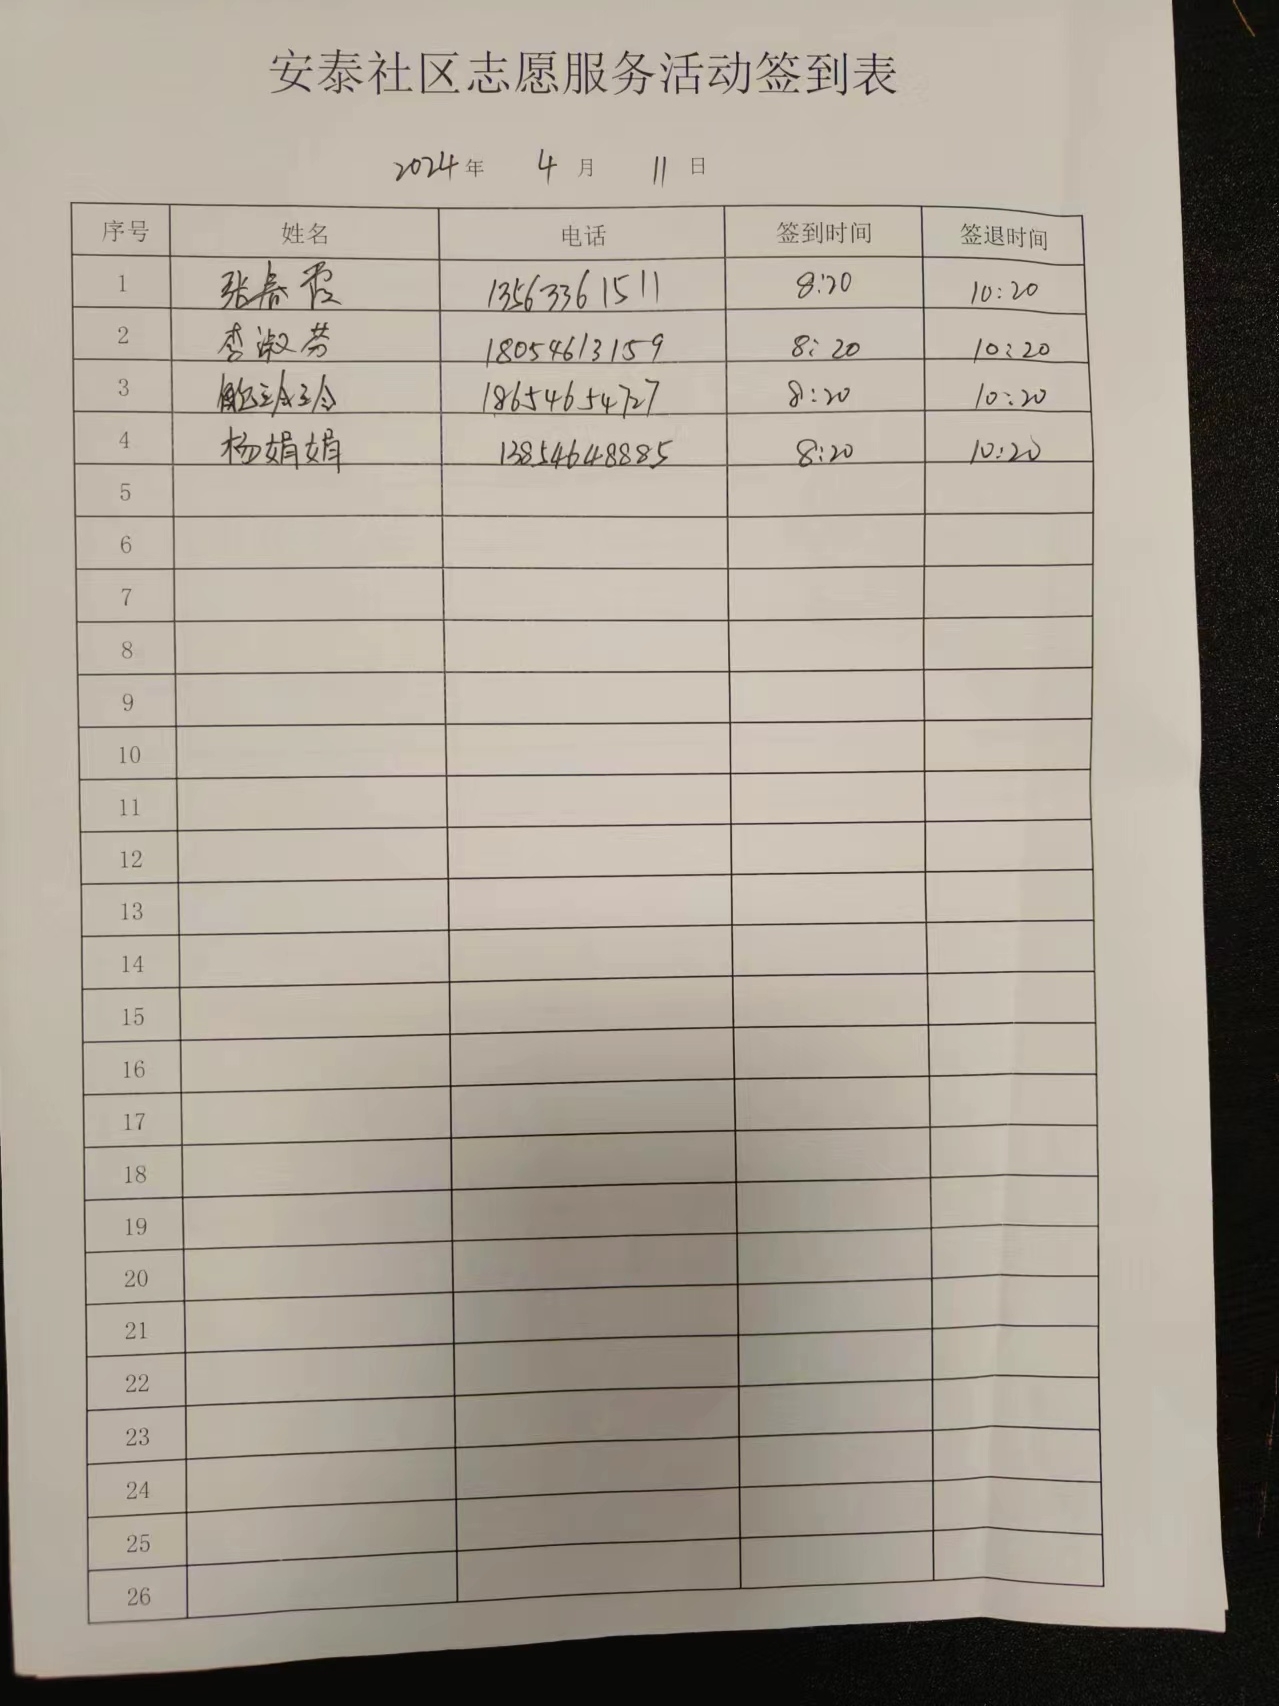 安泰社区志愿服务活动签到表
2024年 4月 11日
序号 姓名 电话 签到时间 签退时间
1 张春霞 13563361511 8:20 10:20
2 李淑芳 18054613159 8:20 10:20
3 18654654727 8:20 10:20
4 杨娟娟 13854648885 8:20 10:20
5
6
7
8
9
10
11
12
13
14
15
16
17
18
19
20
21
22
23
24
25
26